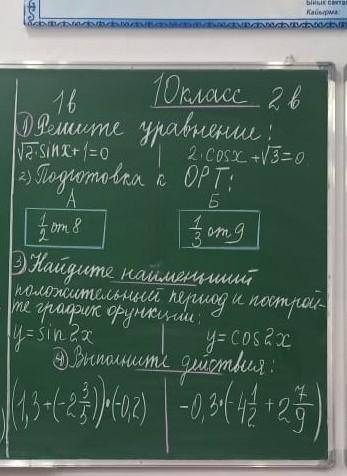 Кайырма:
10класс
1в 2в
1) Решите уравнение:
√2·sinx+1=0 | 2·cosx+√3=0
2) Подготовка к ОРТ:
А Б
1/2 от 8 1/3 от 9
3) Найдите наименьший
положительный период и построй-
те график функции:
y=sin2x | y=cos2x
4) Выполните действия:
(1,3+(-2 3/5))·(-0,2) | -0,3·(-4 1/2+2 7/9)